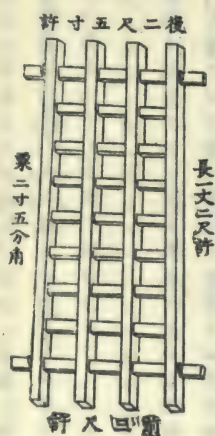 後二尺五寸許
長一丈二尺許
栗二寸五分角
前四尺許